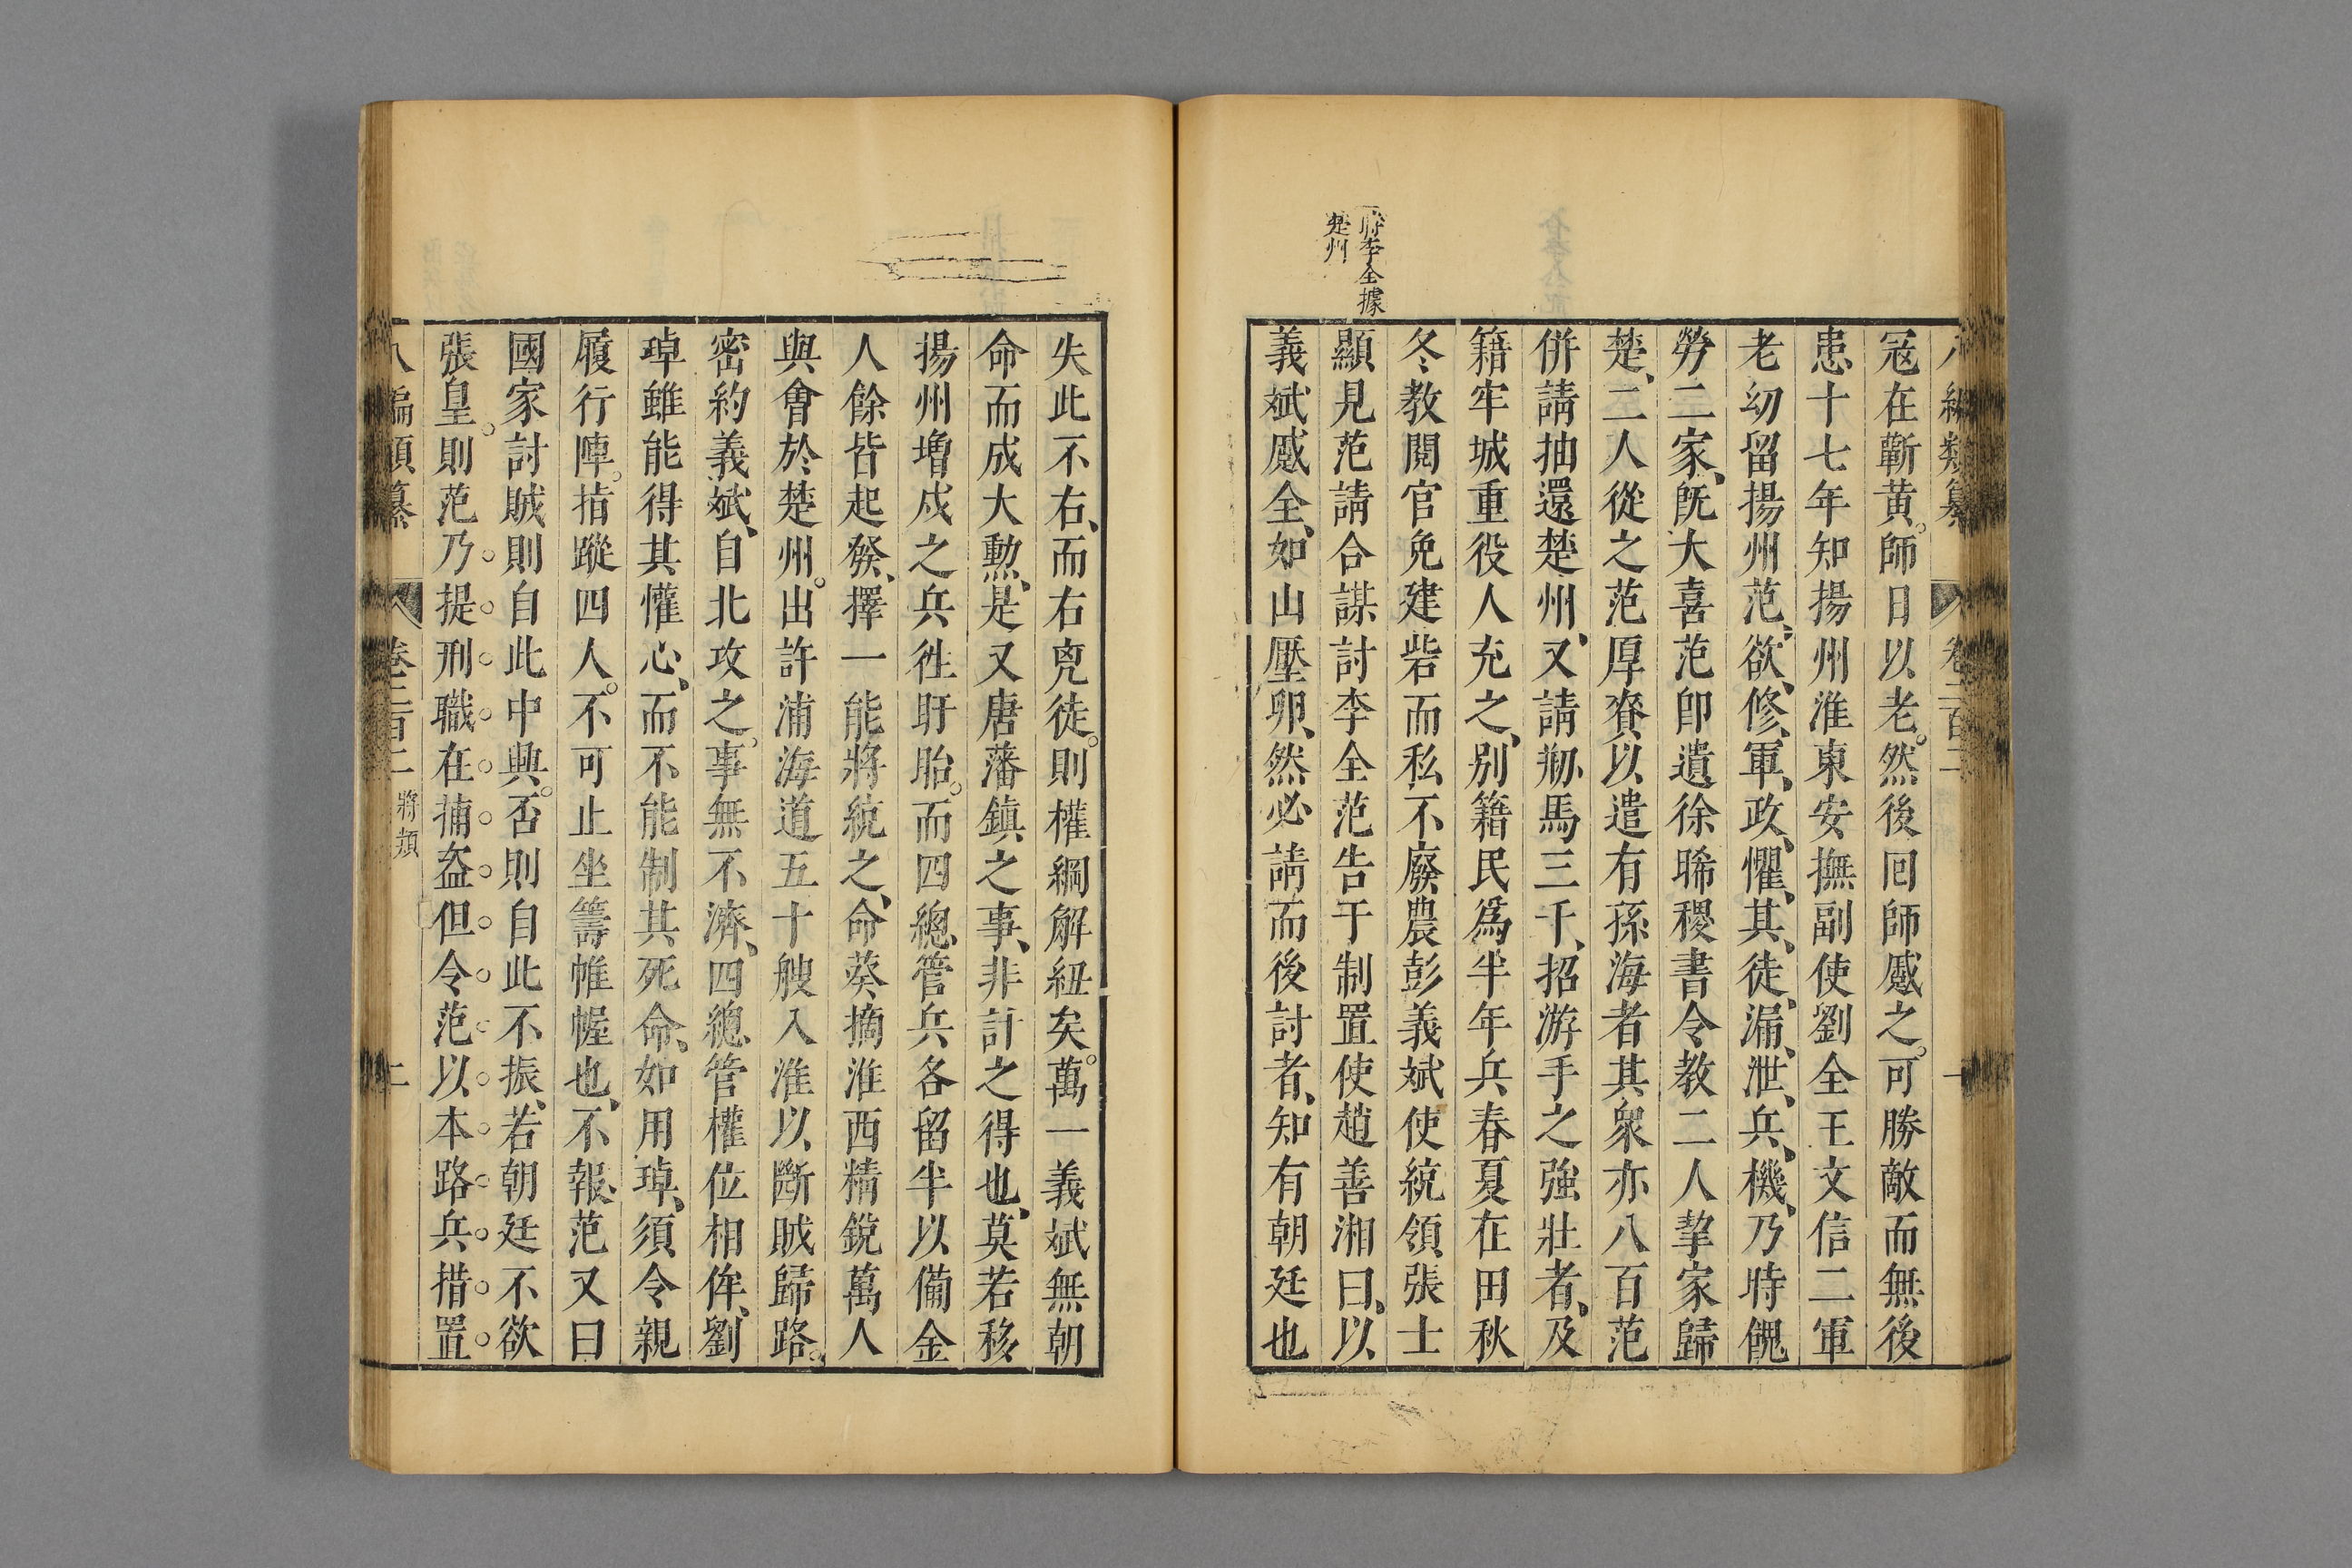 八編類纂 卷二百二
冦在蘄黄。師日以老。然後回師蹙之。可勝敵而無後
患十七年知揚州淮東安撫副使劉全王文信二軍
老幼留揚州范、欲、修、軍、政、懼、其、徒、漏、泄、兵、機、乃時餽
勞二家、旣大喜范卽遺徐晞稷書令教二人挈家歸
楚、二人從之范厚賚以遣有孫海者其衆亦八百范
併請抽還楚州、又請剏馬三千、招游手之強壯者、及
籍牢城重役人充之、别籍民爲半年兵春夏在田秋
冬教閱官免建砦而私不廢農彭義斌使統領張士
時李全據
楚州
顯見范請合謀討李全范告于制置使趙善湘曰、以
義斌蹙全、如山壓卵、然必請而後討者、知有朝廷也
失此不右、而右兇徒。則權綱解紐矣。萬一義斌無朝
命而成大勲、是又唐藩鎮之事、非計之得也、莫若移
揚州増戍之兵徃盱眙。而四總管兵各留半以備金
人餘皆起發、擇一能將統之、命葵摘淮西精銳萬人
與會於楚州。出許浦海道五十艘入淮以斷賊歸路。
密約義斌、自北攻之。事無不濟、四總管權位相侔、劉
琸雖能得其懽心、而不能制其死命、如用琸、須令親
履行陣。指蹤四人。不可止坐籌帷幄也、不報、范又曰
國家討賊則自此中興。否則自此不振、若朝廷不欲
張皇。則范乃提刑職在捕盜但令范以本路兵措置
八編類纂 卷二百二 將類 二